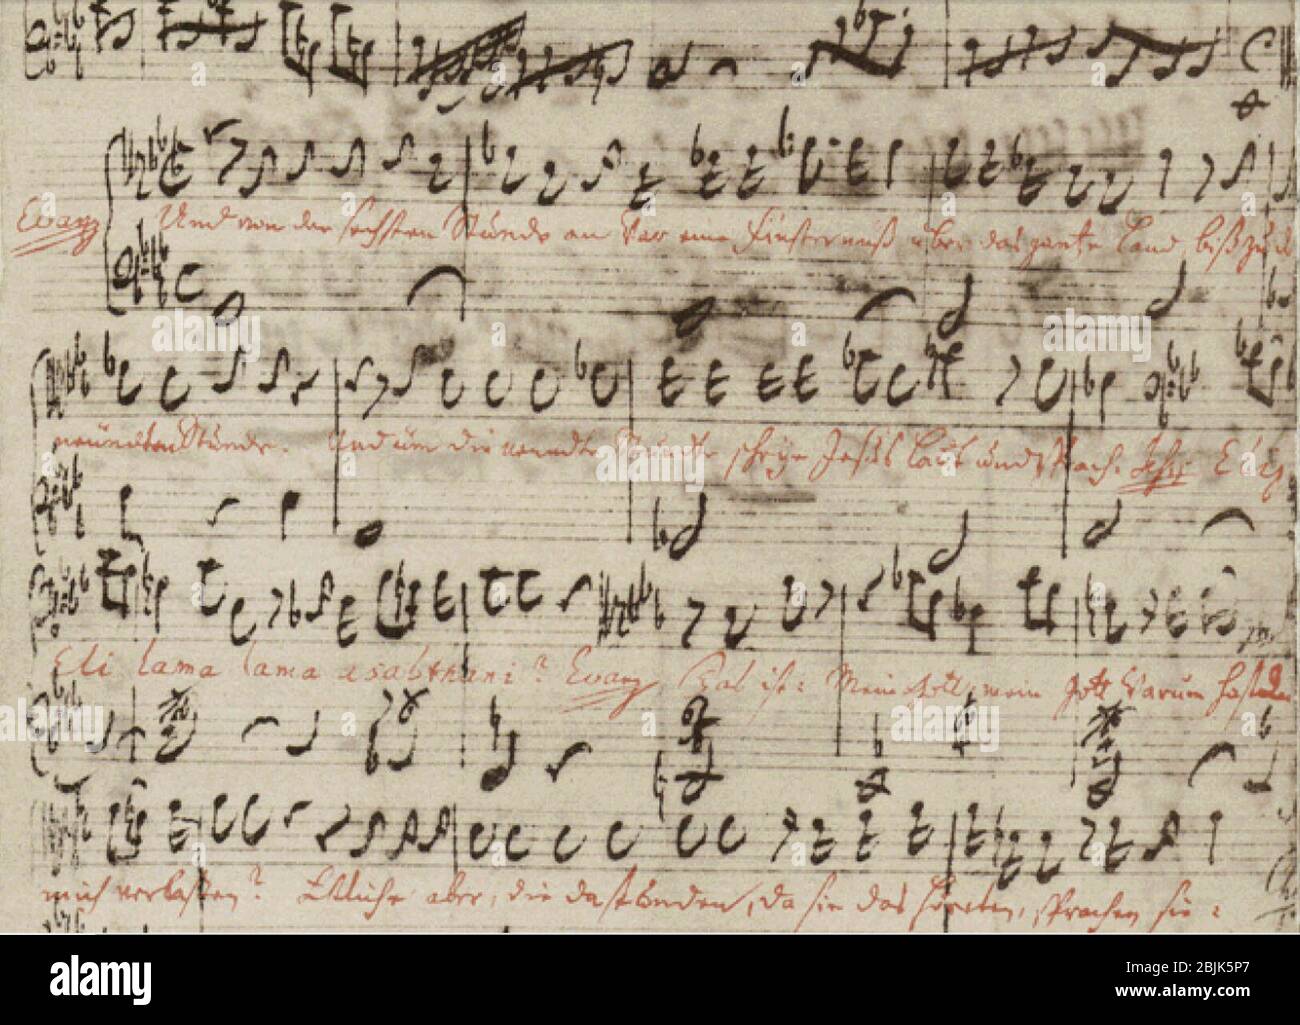 Evang Und von der sechsten Stunde an war eine Finsterniß über das gantze Land biß zu d
neundten Stunde. Und um die neundte Stunde schrye Jesus laut und sprach. Jesus Eli,
Eli lama lama asabthani? Evang Das ist: Mein Gott, mein Gott warum hastdu
mich verlaßen? Etliche aber, die da stunden, da sie das höreten, sprachen sie:
alamy
Image ID: 2BJK5P7
www.alamy.com